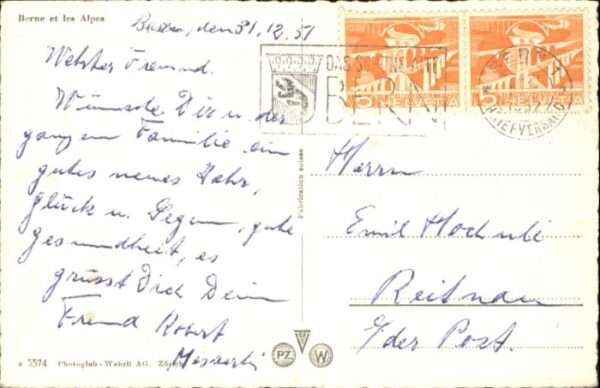 Berne et les Alpes
den 31.12.51
Werter Freund.
Wünsche Dir u. der
ganzen Familie ein
gutes neues Jahr,
Glück u. Segen, gute
gesundheit, es
grüsst Dich Dein
Freund Robert
Fabrication suisse
5 HELVETIA
5 HELVETIA
BERN
BRIEFVERSAND
Herrn
Emil Hochuli
Reitnau
b/der Post.
a 5574 Photoglob-Wehrli AG. Zürich
PZ
W